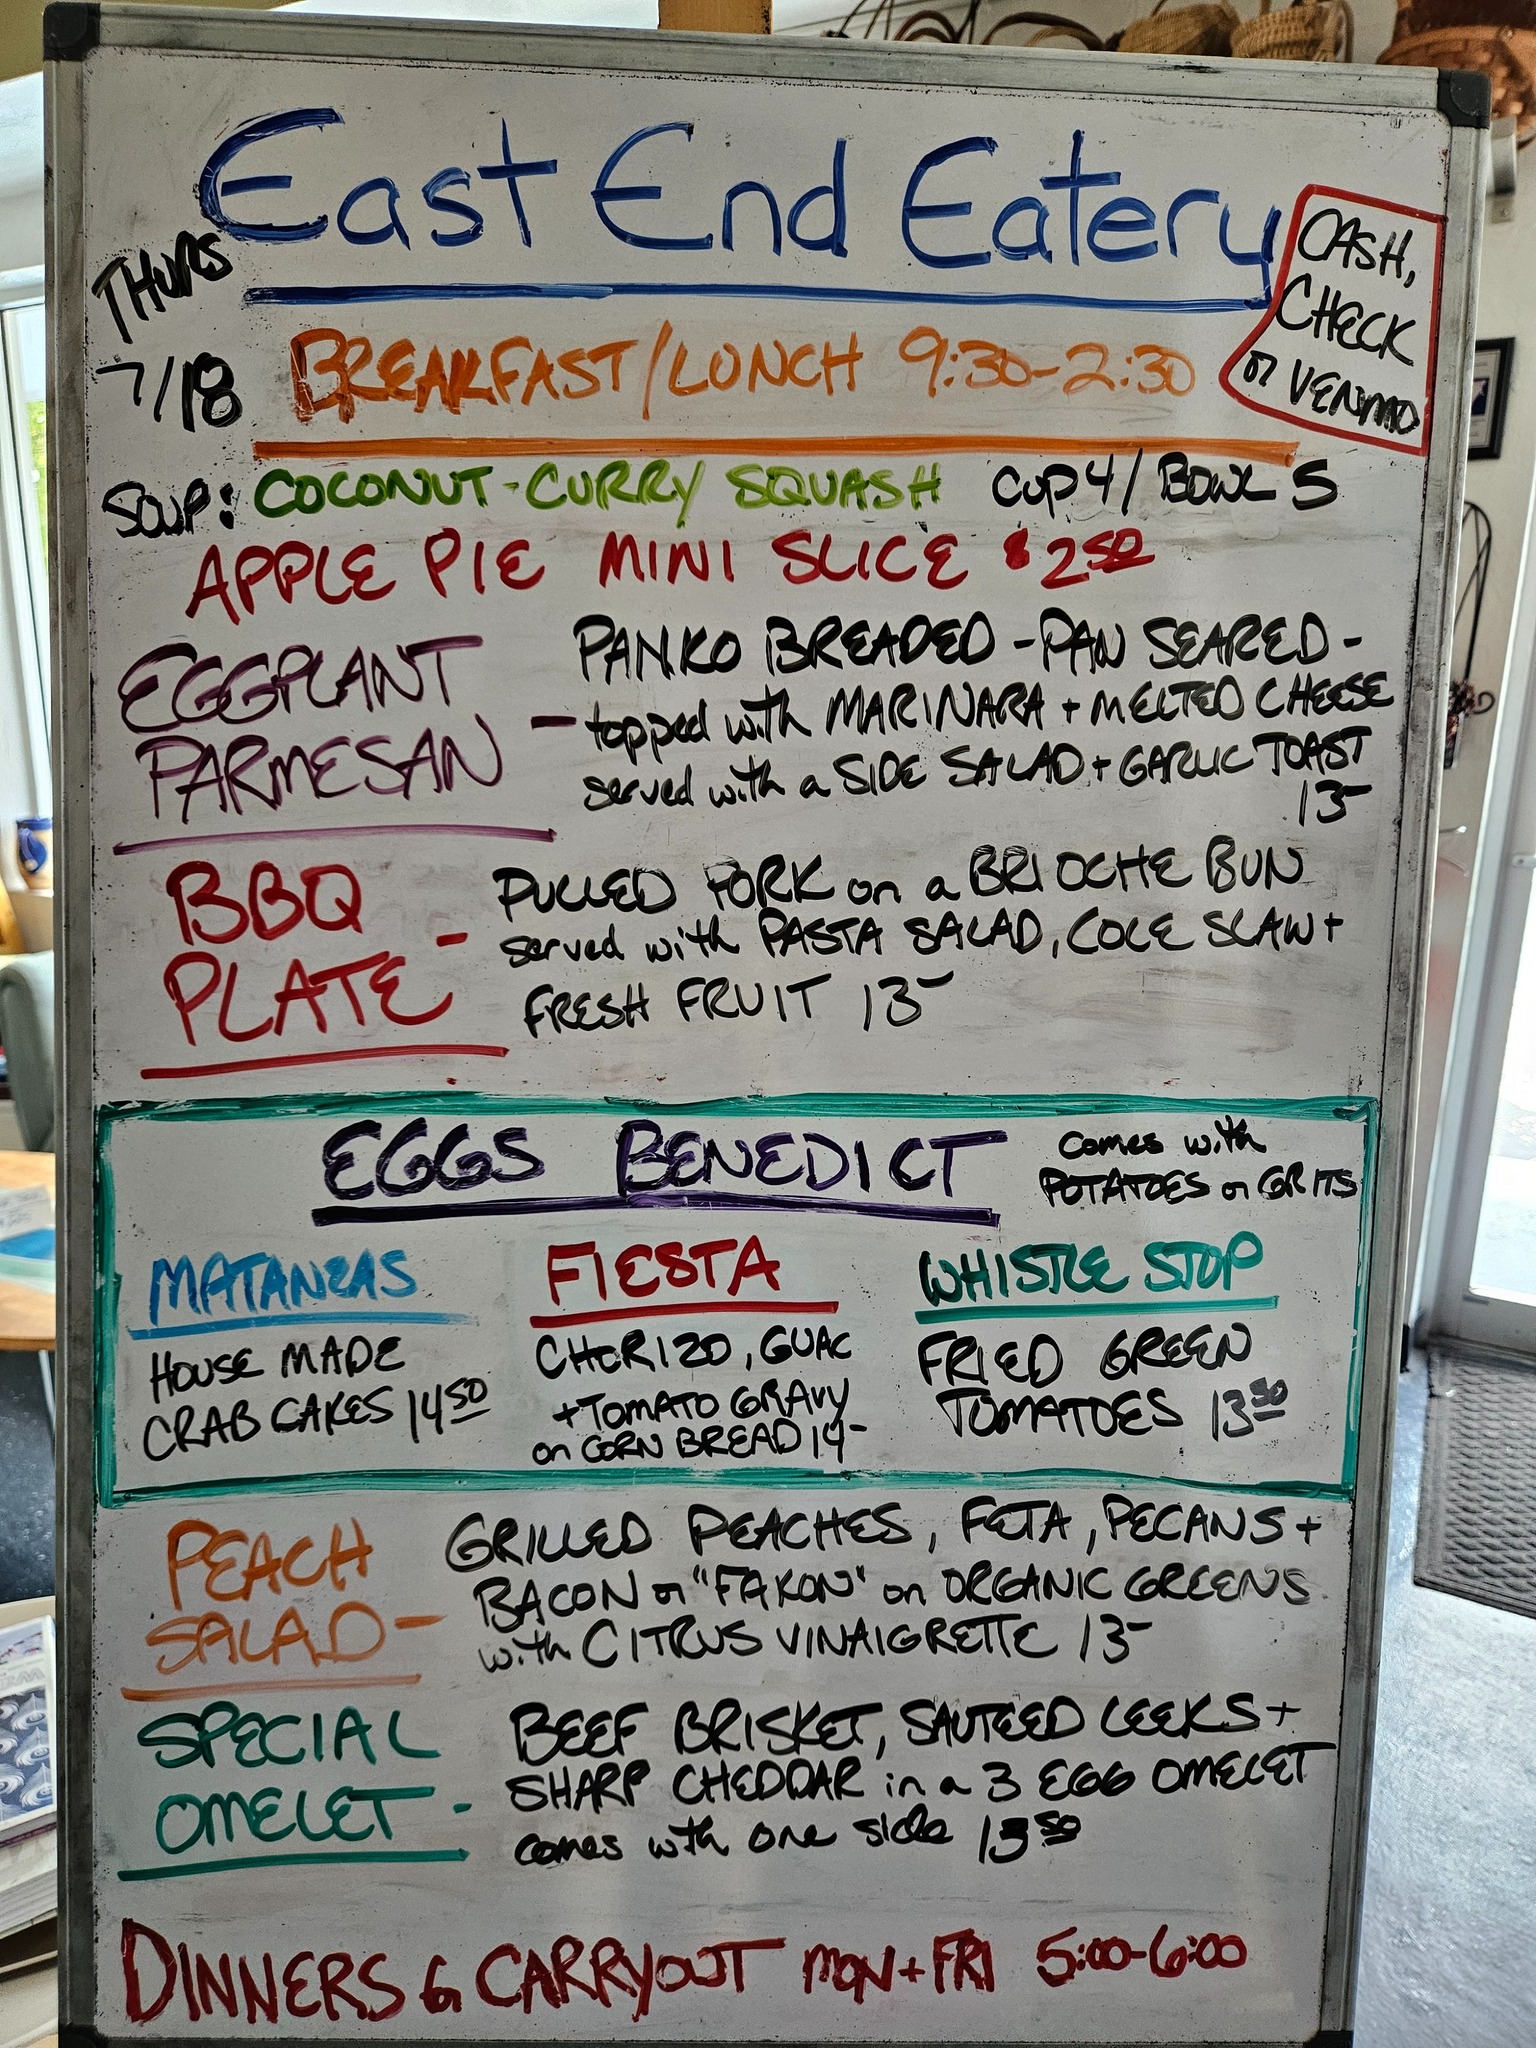 East End Eatery
THURS
7/18
CASH,
CHECK
or VENMO
BREAKFAST/LUNCH 9:30-2:30
SOUP: COCONUT-CURRY SQUASH CUP 4/BOWL 5
APPLE PIE MINI SLICE $2.50
EGGPLANT
PARMESAN -
PANKO BREADED - PAN SEARED -
topped with MARINARA + MELTED CHEESE
served with a SIDE SALAD + GARLIC TOAST
13-
BBQ
PLATE -
PULLED PORK on a BRIOCHE BUN
served with PASTA SALAD, COLE SLAW +
FRESH FRUIT 13-
EGGS BENEDICT
comes with
POTATOES or GRITS
MATANZAS
HOUSE MADE
CRAB CAKES 14 50
FIESTA
CHORIZO, GUAC
+ TOMATO GRAVY
on CORN BREAD 14-
WHISTLE STOP
FRIED GREEN
TOMATOES 13 50
PEACH
SALAD -
GRILLED PEACHES, FETA, PECANS +
BACON or "FAKON" on ORGANIC GREENS
with CITRUS VINAIGRETTE 13-
SPECIAL
OMELET -
BEEF BRISKET, SAUTEED LEEKS +
SHARP CHEDDAR in a 3 EGG OMELET
comes with one side 13 50
DINNERS & CARRYOUT MON + FRI 5:00-6:00